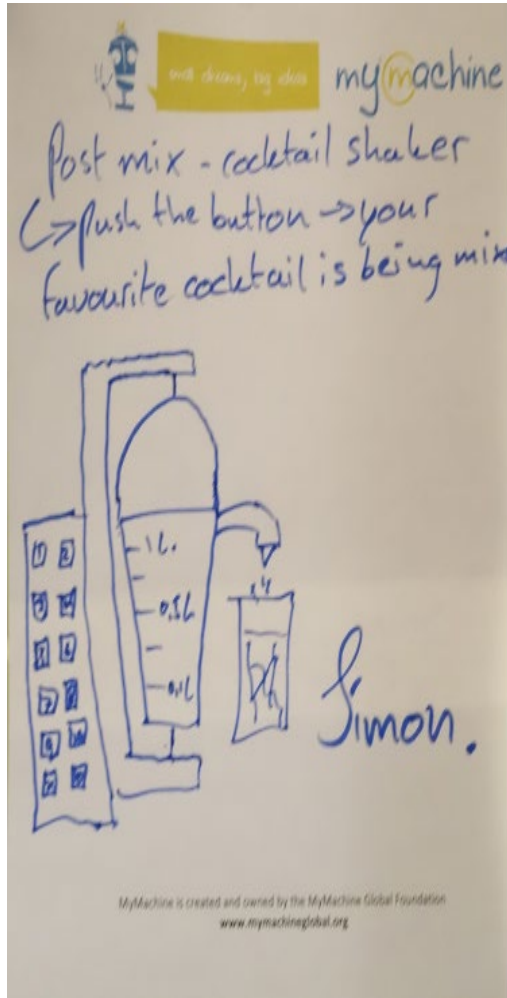 small dreams, big ideas
mymachine
Post mix - cocktail shaker
↳ push the button → your
favourite cocktail is being mix
1 2
3 4
5 6
7
9 10
1L.
0,5L
0,1L
Simon.
MyMachine is created and owned by the MyMachine Global Foundation
www.mymachineglobal.org